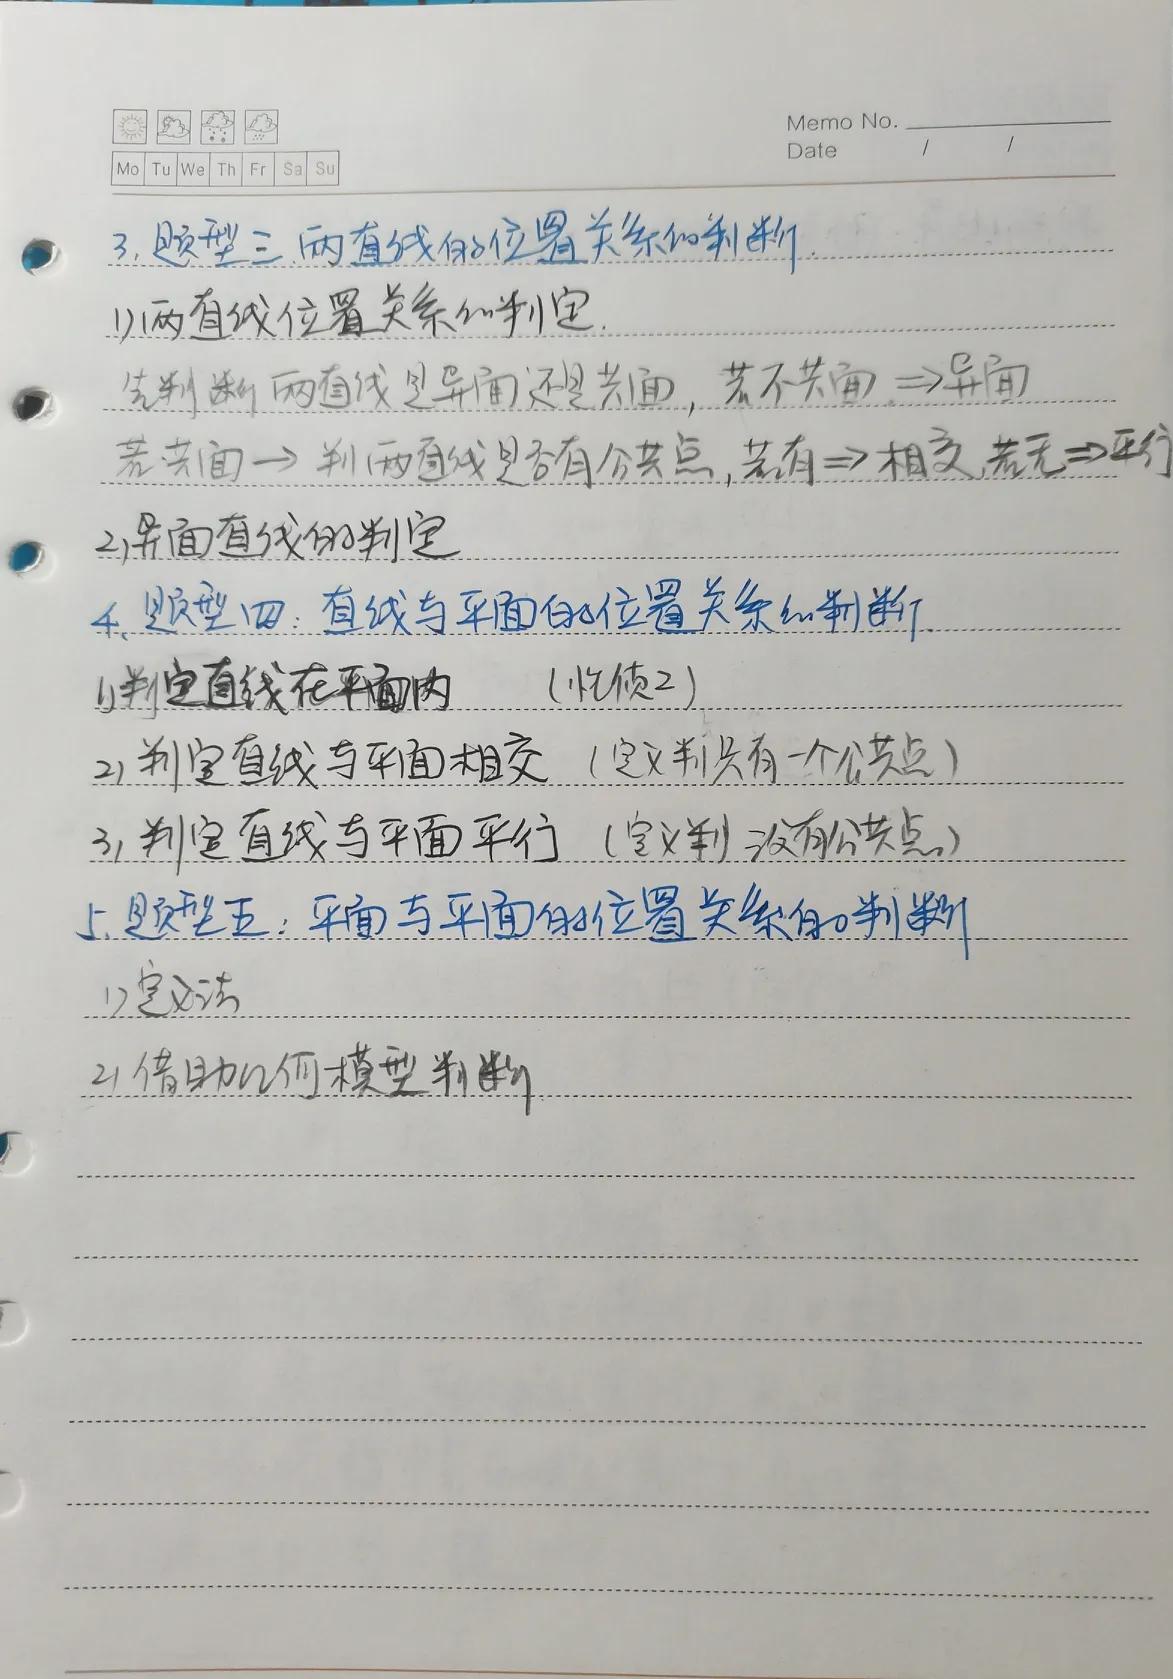 Memo No.
Mo Tu We Th Fr Sa Su
Date / /
3. 题型三 两直线的位置关系的判断.
1) 两直线位置关系的判定.
先判断两直线是异面还是共面，若不共面 ⇒ 异面
若共面 → 判两直线是否有公共点，若有 ⇒ 相交，若无 ⇒ 平行
2) 异面直线的判定
4. 题型四：直线与平面的位置关系的判断.
1) 判定直线在平面内 （性质2）
2) 判定直线与平面相交 （定义判只有一个公共点）
3) 判定直线与平面平行 （定义判没有公共点）
5. 题型五：平面与平面的位置关系的判断
1) 定义法
2) 借助几何模型判断